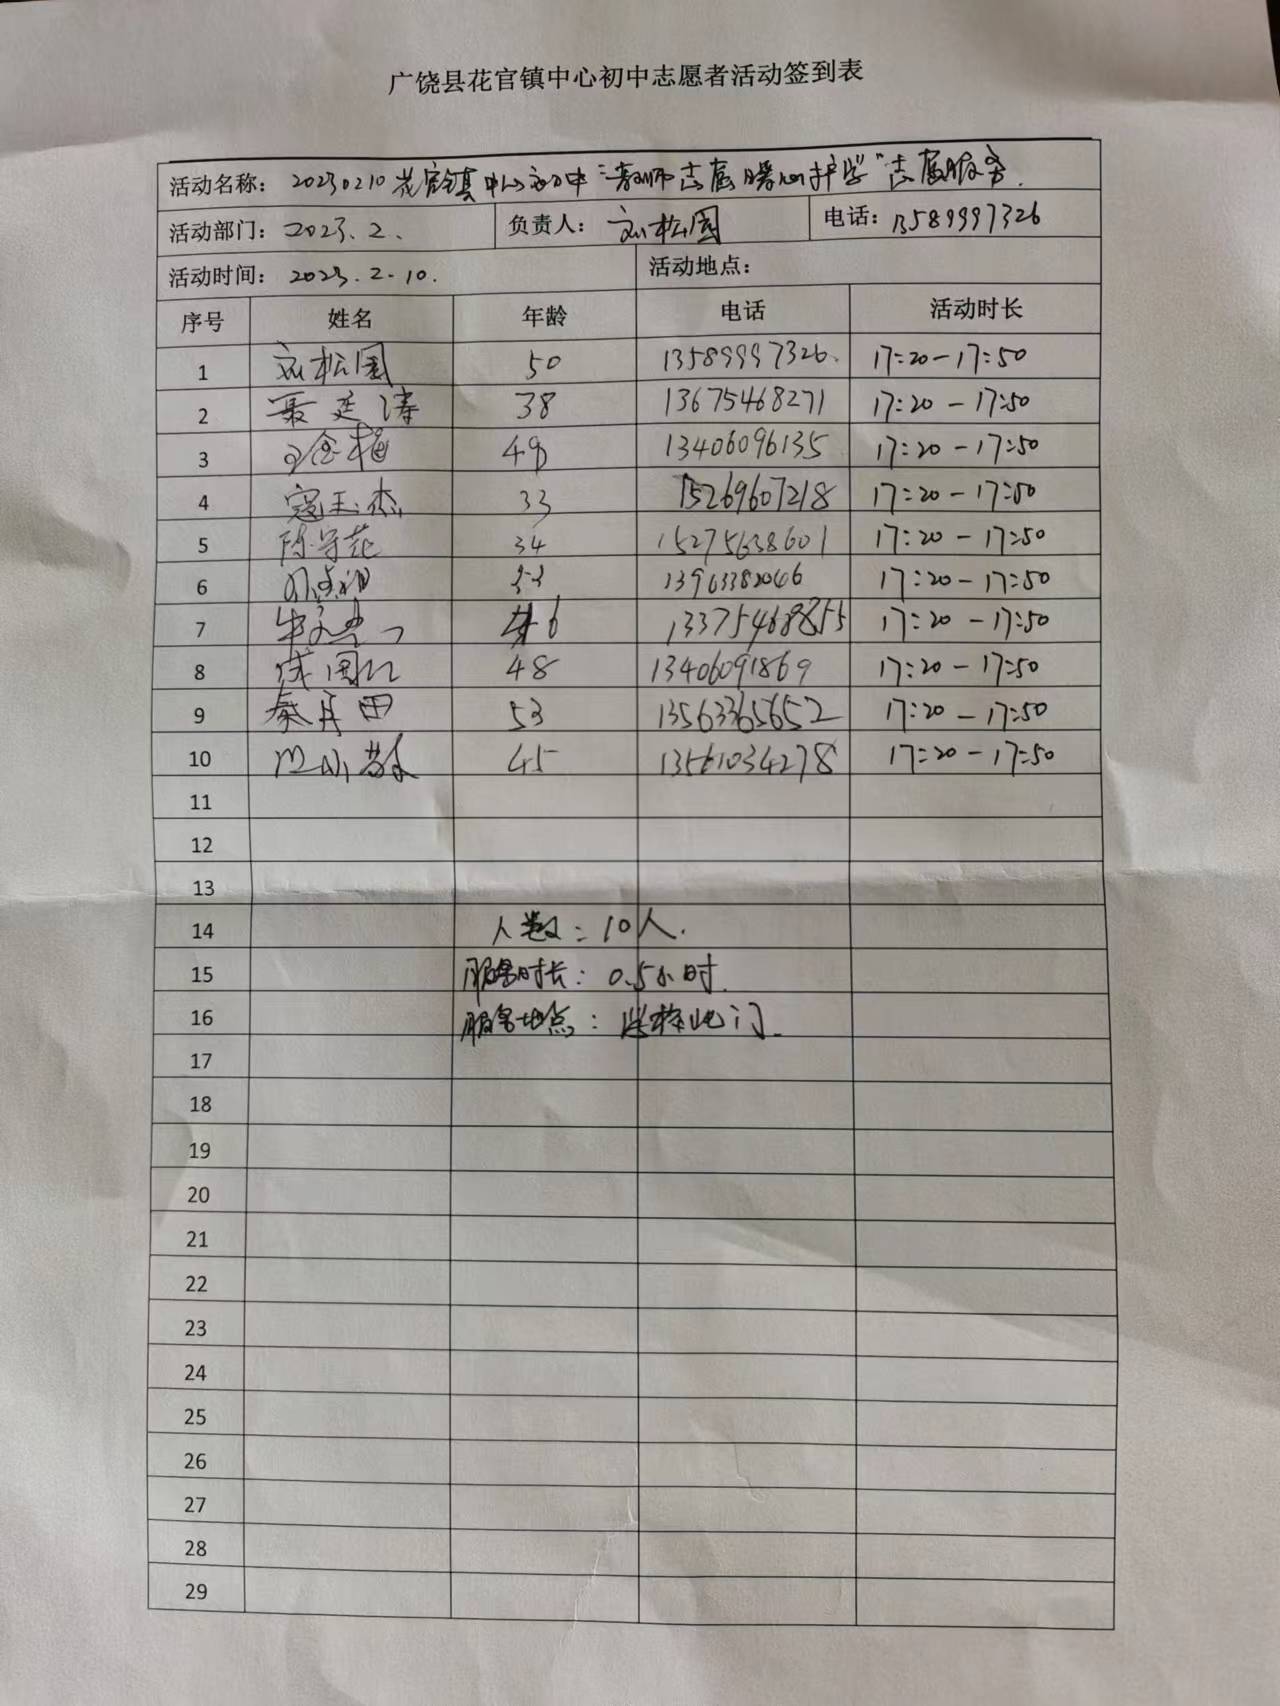 广饶县花官镇中心初中志愿者活动签到表
活动名称: 20230210 花官镇中心初中"教师志愿暖心护学"志愿服务.
活动部门: 2023.2. 负责人: 刘松国 电话: 13589997326
活动时间: 2023.2.10. 活动地点:
序号 姓名 年龄 电话 活动时长
1 刘松国 50 13589997326. 17:20-17:50
2 聂廷涛 38 13675468271 17:20-17:50
3 王金梅 49 13406096135 17:20-17:50
4 寇玉杰 33 15269607218 17:20-17:50
5 陈守花 34 15275638601 17:20-17:50
6 13963382046 17:20-17:50
7 46 13375468855 17:20-17:50
8 48 13406091869 17:20-17:50
9 秦月田 53 13563365652 17:20-17:50
10 45 13561034278 17:20-17:50
11
12
13
14 人数: 10人.
15 服务时长: 0.5小时.
16 服务地点: 学校北门.
17
18
19
20
21
22
23
24
25
26
27
28
29